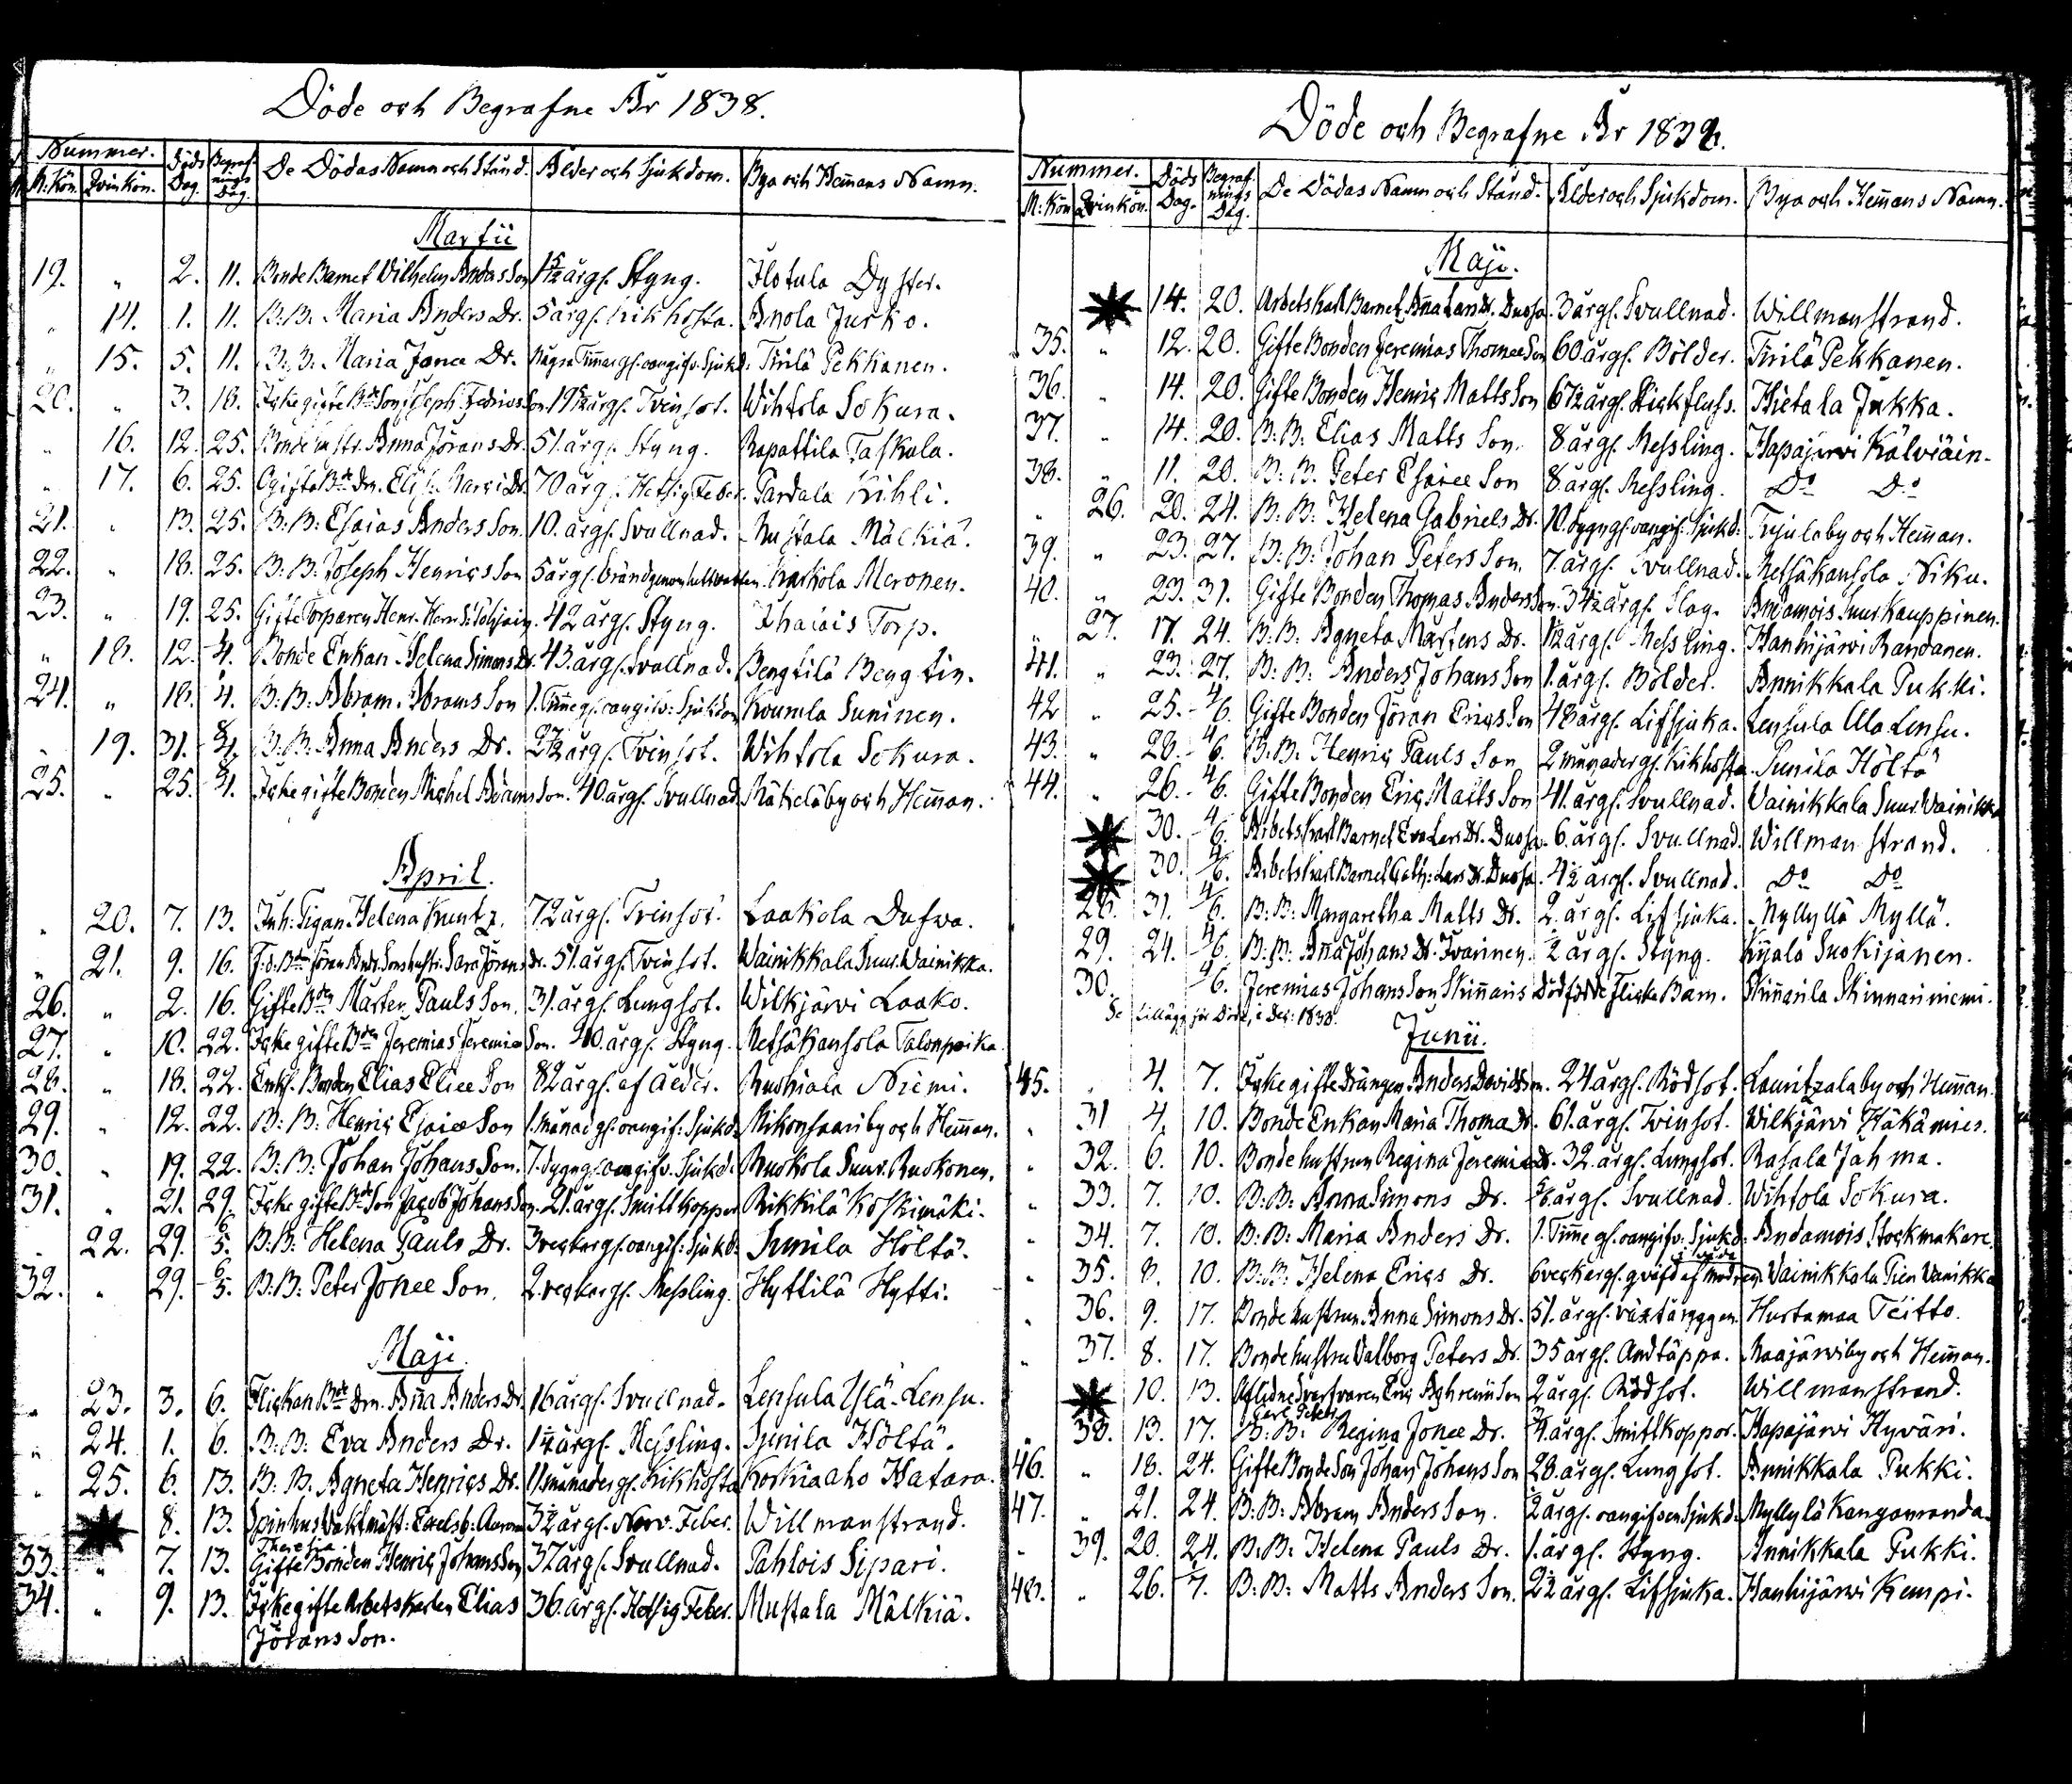 Döde och Begrafne År 1838.
Nummer. Döds Dag. Begrafnings Dag. De Dödas Namn och Stånd. Ålder och Sjukdom. Bya och Hem̄ans Namn.
M: Kön. Qvinkön.
Martii
19. " 2. 11. Bonde Barnet Vilhelm Anders Son 1 5/12 årgl. Styng. Ilotula Dyster.
" 14. 1. 11. B: B: Maria Anders Dr. 5 årgl. kikhosta. Anola Jurko.
" 15. 5. 11. B: B: Maria Jonæ Dr. Några Tim̄ar gl. oangifv. Sjukd: Tirilä Pekkanen.
20. " 3. 18. Icke gifte Bde Son Joseph Fedrics Son. 19 årgl. Tvinsot. Wihtola Sokura.
" 16. 12. 25. Bonde hustr. Anna Jörans Dr. 51. årgl. Styng. Rapattila Taskala.
" 17. 6. 25. Ogifta Bde Drn. Elis: Marci Dr. 70 årgl. Hetsig Feber. Partala Kihli.
21. " 13. 25. B: B: Esaias Anders Son. 10. årgl. Svullnad. Mustala Mälkiä.
22. " 18. 25. B: B: Joseph Henrics Son 5 årgl. bränd genom hett vatten. Karkola Meronen.
23. " 19. 25. Gifte Torparen Henr. Henr. S. 42 årgl. Styng. Ihalais Torp.
" 18. 12. 4. Bonde Enkan Helena Simons Dr. 43. årgl. Svullnad. Bengtilä Bengtin.
24. " 18. 4. B: B: Abram Abrams Son 1. Tim̄e gl. oangifv: Sjukdom Kourula Suninen.
" 19. 31. 8/4. B: B: Anna Anders Dr. årgl. Tvinsot. Wihtola Sokura.
25. " 25. 8/4. Icke gifte Bonden Michel Adams Son. 40. årgl. Svullnad. Mätielä by och Hem̄an.
April.
" 20. 7. 13. Inh: Pigan Helena Kuntz. 72 årgl. Tvinsot. Laakola Dufva.
" 21. 9. 16. F. d. Bden Jöran Andr. Sons hustr. Sara Jörans Dr. 51. årgl. Tvinsot. Wainikkala Suur. Wainikka.
26. " 2. 16. Gifte Bden Mårten Pauls Son. 31. årgl. Lungsot. Wilkjärvi Laako.
27. " 10. 22. Icke gifte Bden Jeremias Jeremiæ Son. 40. årgl. Styng. Metsäkansola Talonpoika.
28. " 18. 22. Enkl. Bonden Elias Eliee Son 82 årgl. af ålder. Ruohiala Niemi.
29. " 12. 22. B: B: Henric Esaiæ Son 1. Månad gl. oangif: Sjukd: Mikonsaari by och Hem̄an.
30. " 19. 22. B: B: Johan Johans Son. 7. dygn gl. oangifv. Sjukd: Ruokola Suur. Ruokonen.
31. " 21. 29. Icke gifte Bde Son Jacob Johans Son. 21. årgl. Smittkoppor Rikkilä Koskimäki.
" 22. 29. 6/5. B: B: Helena Pauls Dr. 3 veckor gl. oangif: Sjukd: Sunila Höltä.
32. " 29. 6/5. B: B: Peter Jonee Son. 2. veckor gl. Messling. Hyttilä Hytti.
Maji.
" 23. 3. 6. Flickan Bde Drn. An̄a Anders Dr. 16 årgl. Svullnad. Lensula Ylä-Lensu.
" 24. 1. 6. B: B: Eva Anders Dr. årgl. Messling. Sunila Höltä.
" 25. 6. 13. B: B. Agneta Henrics Dr. 11 månader gl. Kikhosta Korkiaaho Hatara.
8. 13. Spinhus Vaktmäst: 3½ årgl. Nerv. Feber. Willmanstrand.
Theresia
33. " 7. 13. Gifte Bonden Henric Johans Son 37 årgl. Svullnad. Pahlois Sipari.
34. " 9. 13. Icke gifte Arbetskarlen Elias 36. årgl. Hetsig Feber. Mustala Mälkiä.
Jörans Son.
Döde och Begrafne År 1838.
Nummer. Döds Dag. Begrafnings Dag. De Dödas Namn och Stånd. Ålder och Sjukdom. Bya och Hem̄ans Namn.
M: Kön Qvinkön.
Maji.
14. 20. Arbetskarl Barnet An̄a Lars Dr. Dussa. 3 årgl. Svullnad. Willmanstrand.
35. " 12. 20. Gifte Bonden Jeremias Thomæ Son 60 årgl. Bölder. Tirilä Pekkanen.
36. " 14. 20. Gifte Bonden Henric Matts Son 67½ årgl. Stickfluss. Hietala Jukka.
37. " 14. 20. B: B: Elias Matts Son. 8 årgl. Messling. Hapajärvi Kälviäin.
38. " 11. 20. B: B: Peter Esaiee Son 8 årgl. Messling. Do Do
" 26. 20. 24. B: B: Helena Gabriels Dr. 10. dygn gl. oangif. Sjukd: by och Hem̄an.
39. " 23. 27. B: B: Johan Peters Son. 7. årgl. Svullnad. Metsäkansola Niku.
40. " 23. 31. Gifte Bonden Thomas Anders Son. 34½ årgl. Slag. Andamois Suurkauppinen.
" 27. 17. 24. B: B: Agneta Mårtens Dr. årgl. Messling. Hanhijärvi Randanen.
41. " 23. 27. B: B: Anders Johans Son 1. årgl. Bölder. Annikkala Pukki.
42 " 25. 4/6. Gifte Bonden Jöran Erics Son 48 årgl. Lifsjuka. Lensula Ala Lensu.
43. " 28. 4/6. B: B: Henric Pauls Son 2 månader gl. Kikhosta. Sunila Höltä
44. " 26. 4/6. Gifte Bonden Eric Matts Son 41. årgl. Svullnad. Vainikkala Suur Vainikka
30. 4/6. Arbetskarl Barnet Eva Lars Dr. Dussa. 6. årgl. Svullnad. Willmanstrand.
30. 4/6. Arbetskarl Barnet Cath: Lars Dr. Dussa. 4½ årgl. Svullnad. Do Do
28. 31. 4/6. B: B: Margaretha Matts Dr. 2. årgl. Lifsjuka. Myllylä Myllä.
29. 24. 4/6. B: B: An̄a Johans Dr. Ivainen. ½ årgl. Styng. Suokijanen.
30. 4/6. Jeremias Johans Son Skin̄aris Dödfödde Flicke Barn. Skin̄arila Skinnariniemi.
Se tillägg för Döde, i Dec: 1838.
Junii.
45. " 4. 7. Icke gifte Drängen Anders Davids Son. 24 årgl. Rödsot. Lauritzala by och Hem̄an.
" 31 4. 10. Bonde Enkan Maria Thomæ Dr. 61. årgl. Tvinsot. Wilkjärvi Häkämies.
" 32. 6. 10. Bonde hustrun Regina Jeremiæ Dr. 32. årgl. Lungsot. Rasala Jahma.
" 33. 7. 10. B: B: Anna Simons Dr. årgl. Svullnad. Wihtola Sokura.
" 34. 7. 10. B: B: Maria Anders Dr. 1. Tim̄e gl. oangifv: Sjukd: Andamois Stockmakare.
" 35. 8. 10. B: B: Helena Erics Dr. 6 veckor gl. qväfd af modren. Vainikkala Pien Vanikka
" 36. 9. 17. Bonde hustrun Anna Simons Dr. 51. årgl. växt i ryggen. Hurtamaa Teitto.
" 37. 8. 17. Bonde hustru Valborg Peters Dr. 35 årgl. Andtäppa. Raajärvi by och Hem̄an.
10. 13. Aflidne Svarfvaren Eric Son 2 årgl. Rödsot. Willmanstrand.
Carl Peter
" 38. 13. 17. B: B: Regina Jonee Dr. ¾ årgl. Smittkoppor. Hapajärvi Hyväri.
46. " 18. 24. Gifte Bonde Son Johan Johans Son 28. årgl. Lungsot. Annikkala Pukki.
47. " 21. 24. B: B: Abram Anders Son. ½ årgl. oangifven Sjukd: Myllylä Kangasranda.
" 39. 20. 24. B: B: Helena Pauls Dr. 1. årgl. Styng. Annikkala Pukki.
48. " 26. 7. B: B: Matts Anders Son. 2½ årgl. Lifsjuka. Hanhijärvi Kempi.